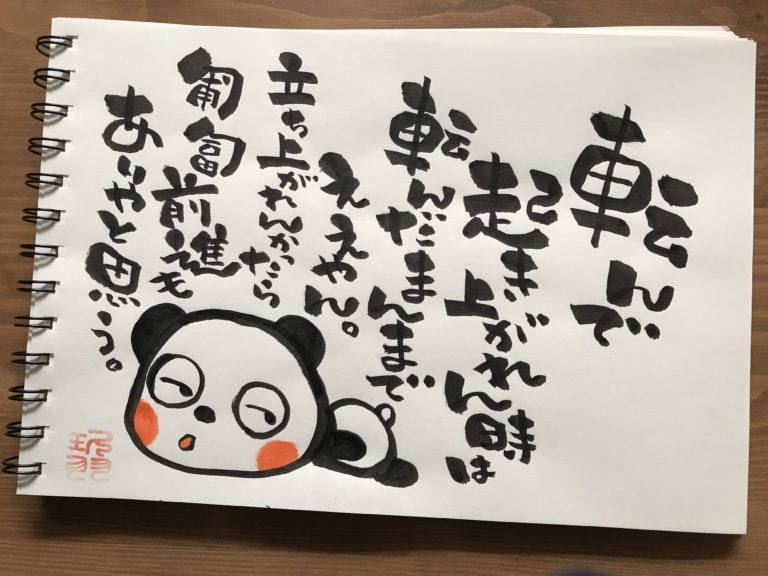 転んで
起き上がれん時は
転んだまんまで
ええやん。
立ち上がれんかったら
匍匐前進も
ありやと思う。